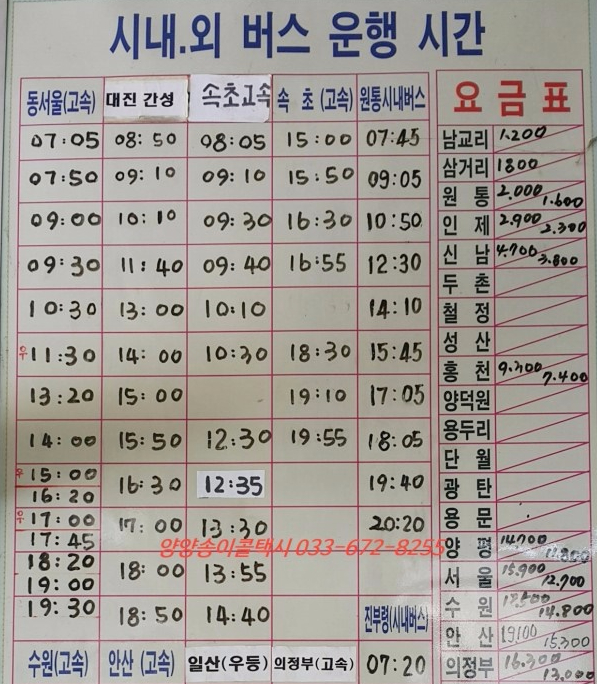 시내.외 버스 운행 시간
동서울(고속) 대진 간성 속초고속 속 초 (고속) 원통시내버스 요 금 표
07:05 08:50 08:05 15:00 07:45 남교리 1.200
07:50 09:10 09:10 15:50 09:05 삼거리 1800
원 통 2.000 1.600
09:00 10:10 09:30 16:30 10:50 인 제 2.900 2.300
09:30 11:40 09:40 16:55 12:30 신 남 4.700 3.800
두 촌
10:30 13:00 10:10 14:10 철 정
우 11:30 14:00 10:30 18:30 15:45 성 산
홍 천 9.300 7.400
13:20 15:00 19:10 17:05 양덕원
14:00 15:50 12:30 19:55 18:05 용두리
단 월
우 15:00 16:30 12:35 19:40 광 탄
16:20
우 17:00 17:00 13:30 20:20 용 문
17:45 양 평 14.700 11.800
양양송이콜택시 033-672-8255
18:20 18:00 13:55 서 울 15.900 12.700
19:00
19:30 18:50 14:40 진부령(시내버스) 수 원 14.800
안 산 19100 15.300
수원(고속) 안산 (고속) 일산(우등) 의정부(고속) 07:20 의정부 16.300 13.000